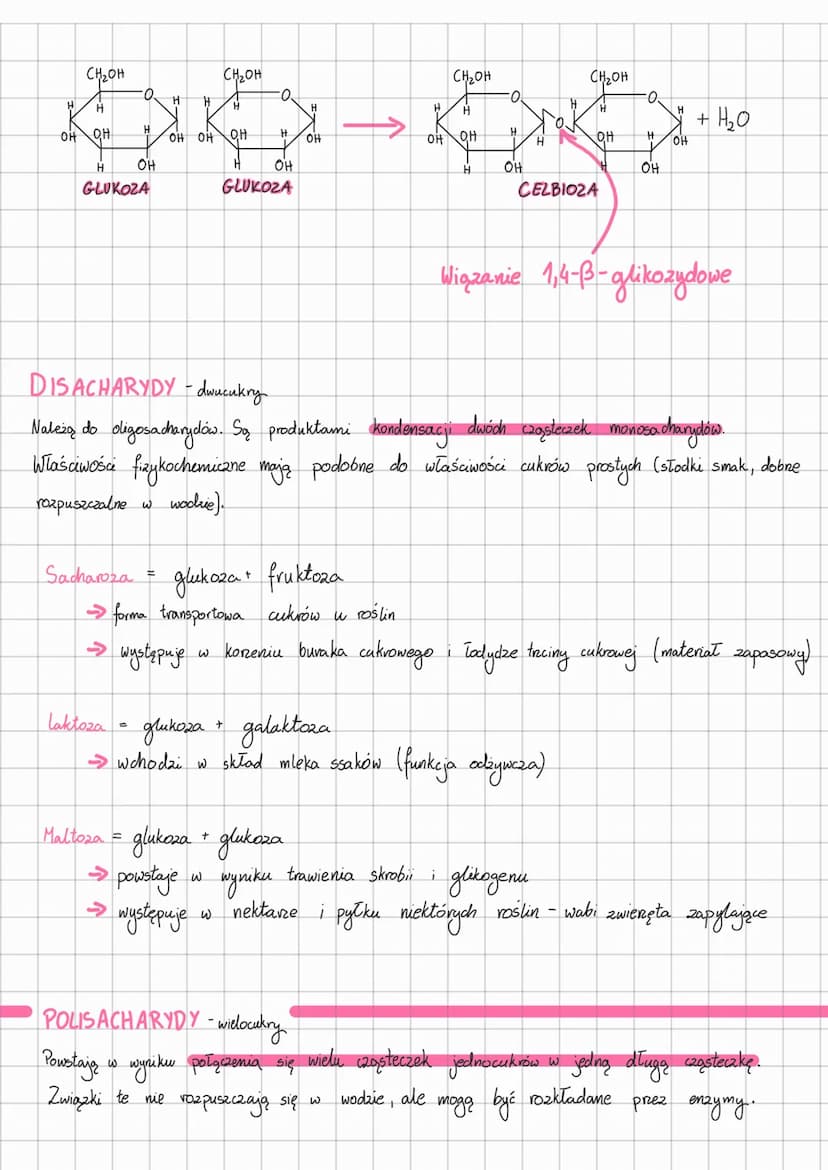 CH₂OH CH₂OH CH₂OH CH₂OH
O O O O
H H H H H H H
H H H H
OH OH H OH OH OH H OH OH OH H O H OH H OH + H₂O
H OH H OH H OH H OH
GLUKOZA GLUKOZA CELBIOZA
Wiązanie 1,4-β-glikozydowe
DISACHARYDY - dwucukry
Należą do oligosacharydów. Są produktami kondensacji dwóch cząsteczek monosacharydów.
Właściwości fizykochemiczne mają podobne do właściwości cukrów prostych (słodki smak, dobne
rozpuszczalne w wodzie).
Sacharoza = glukoza + fruktoza
→ forma transportowa cukrów u roślin
→ występuje w korzeniu buraka cukrowego i łodydze trzciny cukrowej (materiał zapasowy)
laktoza = glukoza + galaktoza
→ wchodzi w skład mleka ssaków (funkcja odżywcza)
Maltoza = glukoza + glukoza
→ powstaje w wyniku trawienia skrobii i glikogenu
→ występuje w nektarze i pyłku niektórych roślin - wabi zwierzęta zapylające
POLISACHARYDY - wielocukry
Powstają w wyniku połączenia się wielu cząsteczek jednocukrów w jedną długą cząsteczkę.
Związki te nie rozpuszczają się w wodzie, ale mogą być rozkładane przez enzymy.